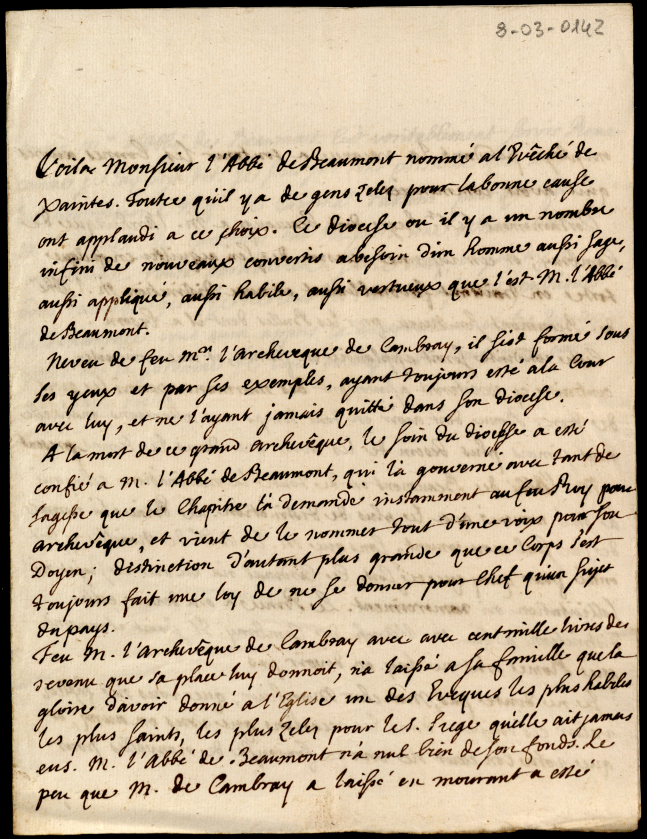 8-03-0142
Voila Monsieur l'Abbé de Beaumont nommé a l'Evêché de
Xaintes. Toutce qu'il y a de gens zelez pour la bonne cause
ont applaudi a ce choix. Ce diocese ou il y a un nombre
infini de nouveaux convertis a besoin d'un homme aussi sage,
aussi appliqué, aussi habile, aussi vertueux que l'est M. l'Abbé
de Beaumont.
Neveu de feu Mr. l'archeveque de Cambray, il s'est formé sous
ses yeux et par ses exemples, ayant toujours esté a la Cour
avec luy, et ne l'ayant jamais quitté dans son diocese.
A la mort de ce grand archevêque, le soin du diocesse a esté
confié a M. l'Abbé de Beaumont, qui l'a gouverné avec tant de
sagesse que le Chapitre l'a demandé instamment au feu Roy pour
archevêque, et vient de le nommer tout d'une voix pour son
Doyen; distinction d'autant plus grande que ce Corps s'est
toujours fait une loy de ne se donner pour Chef qu'un sujet
du pays.
Feu M. l'archevêque de Cambray avec avec cent mille livres de
revenu que sa place luy donnoit, n'a laissé a sa famille que la
gloire d'avoir donné a l'Eglise un des Eveques les plus habiles
les plus saints, les plus zelez pour le S. Siege qu'elle ait jamais
eus. M. l'Abbé de Beaumont n'a nul bien de son fonds. Le
peu que M. de Cambray a laissé en mourant a esté